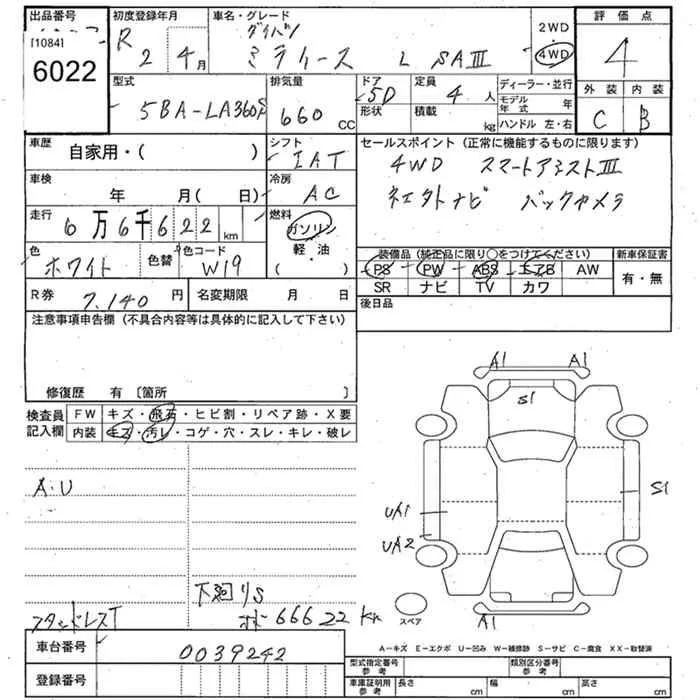 出品番号
[1084]
6022
初度登録年月
R 2 4月
車名・グレード
ダイハツ
ミライース L SAⅢ
2WD
4WD
評価点
4
外装 内装
C B
型式
5BA-LA360S
排気量
660 CC
ドア
5D
形状
定員
4 人
積載 kg
ディーラー・並行
モデル年式 年
ハンドル 左・右
車歴
自家用・( )
シフト
IAT
セールスポイント (正常に機能するものに限ります)
4WD スマートアシストⅢ
ナビ バックカメラ
車検
年 月( 日)
冷房
AC
走行
6万6千622 km
燃料
ガソリン
軽・油
( )
色
ホワイト
色替
色コード
W19
装備品 (純正品に限り○をつけてください)
新車保証書
PS PW ABS エアB AW
有・無
SR ナビ TV カワ
R券
7,140 円
名変期限 月 日
後日品
注意事項申告欄 (不具合内容等は具体的に記入して下さい)
修復歴 有 [箇所 ]
検査員
記入欄
FW キズ・飛石・ヒビ割・リペア跡・X要
内装 キズ・汚レ・コゲ・穴・スレ・キレ・破レ
A1 A1
S1
S1
UA1
UA2
A1
スペア
A.U
下廻りS
スタッドレスT
66622 km
A-キズ E-エクボ U-凹み W-補修跡 S-サビ C-腐食 XX-取替済
車台番号
0039242
登録番号
型式指定番号
参考
類別区分番号
参考
車庫証明用
参考
長さ cm 幅 cm 高さ cm